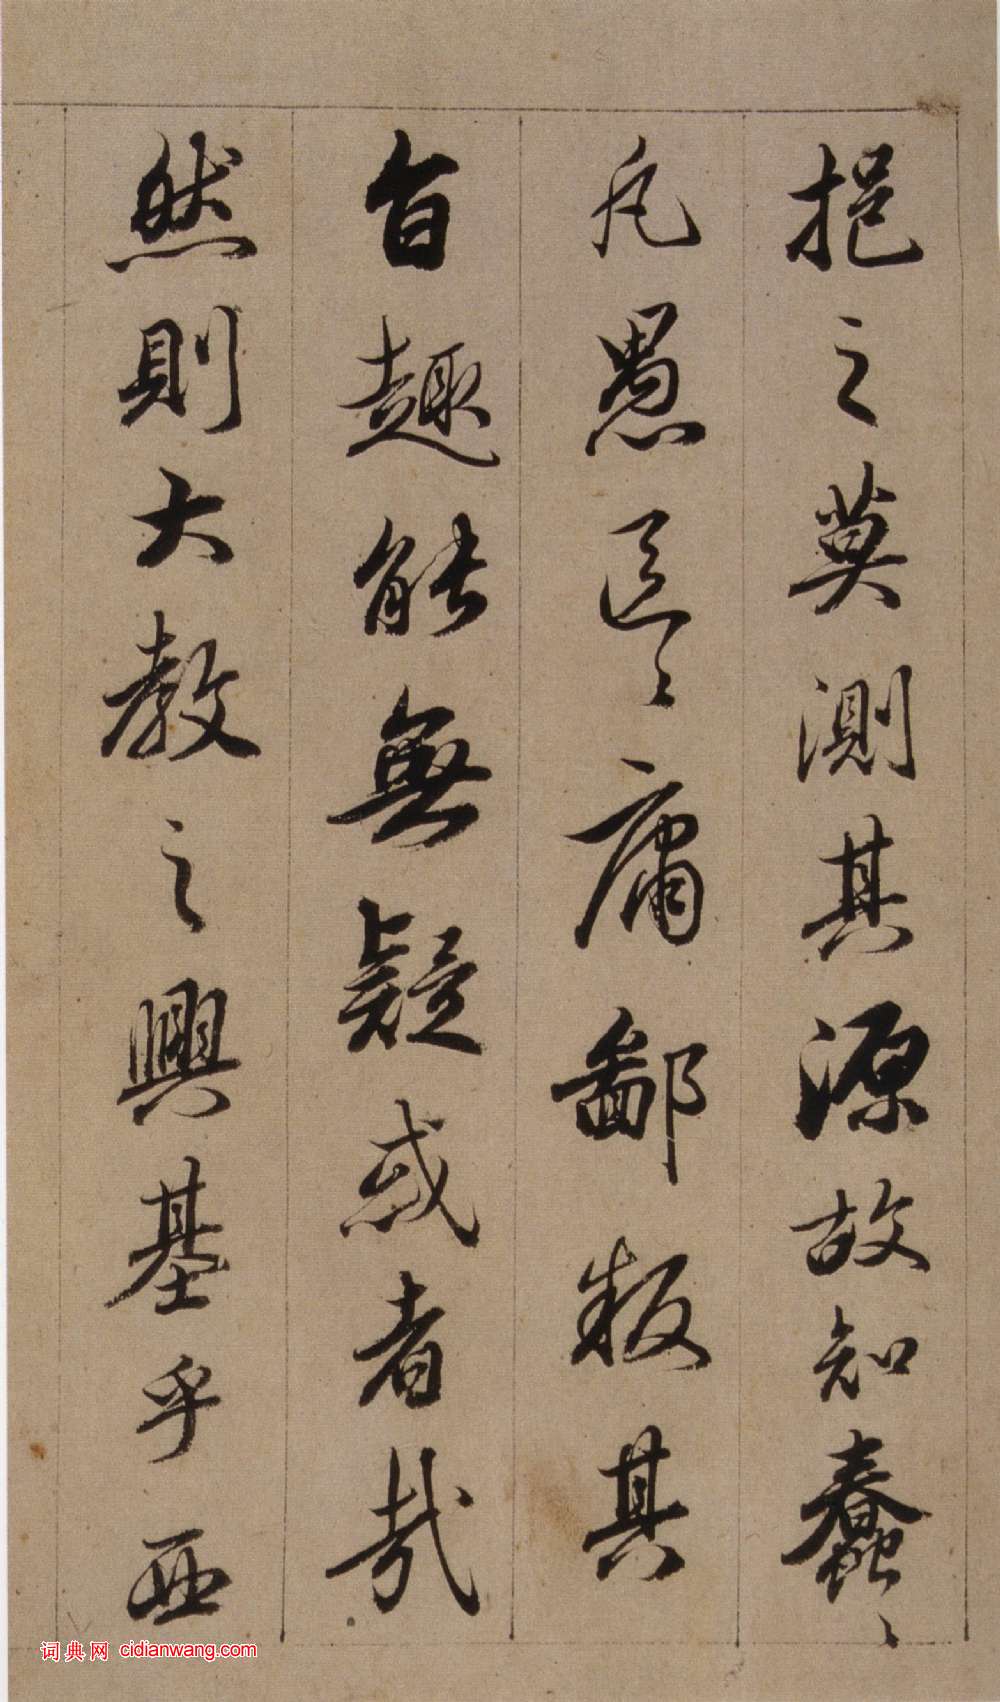 挹之莫測其源故知蠢〻
凡愚區〻庸鄙投其
旨趣能無疑惑者哉
然則大教之興基乎西
词典网 cidianwang.com